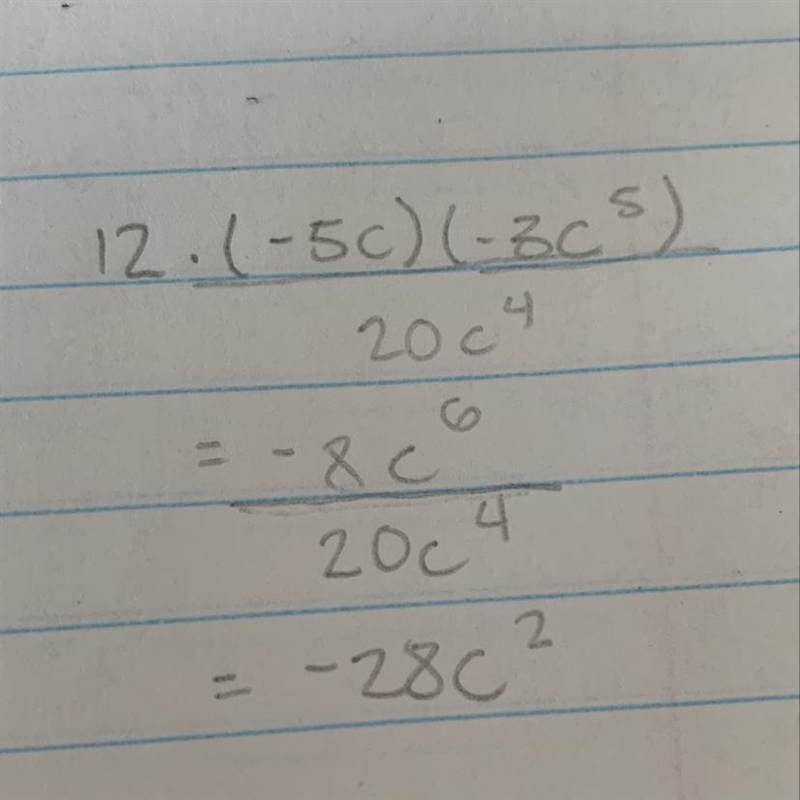 12. (-5c)(-3c⁵)
20c⁴
= -8c⁶
20c⁴
= -28c²